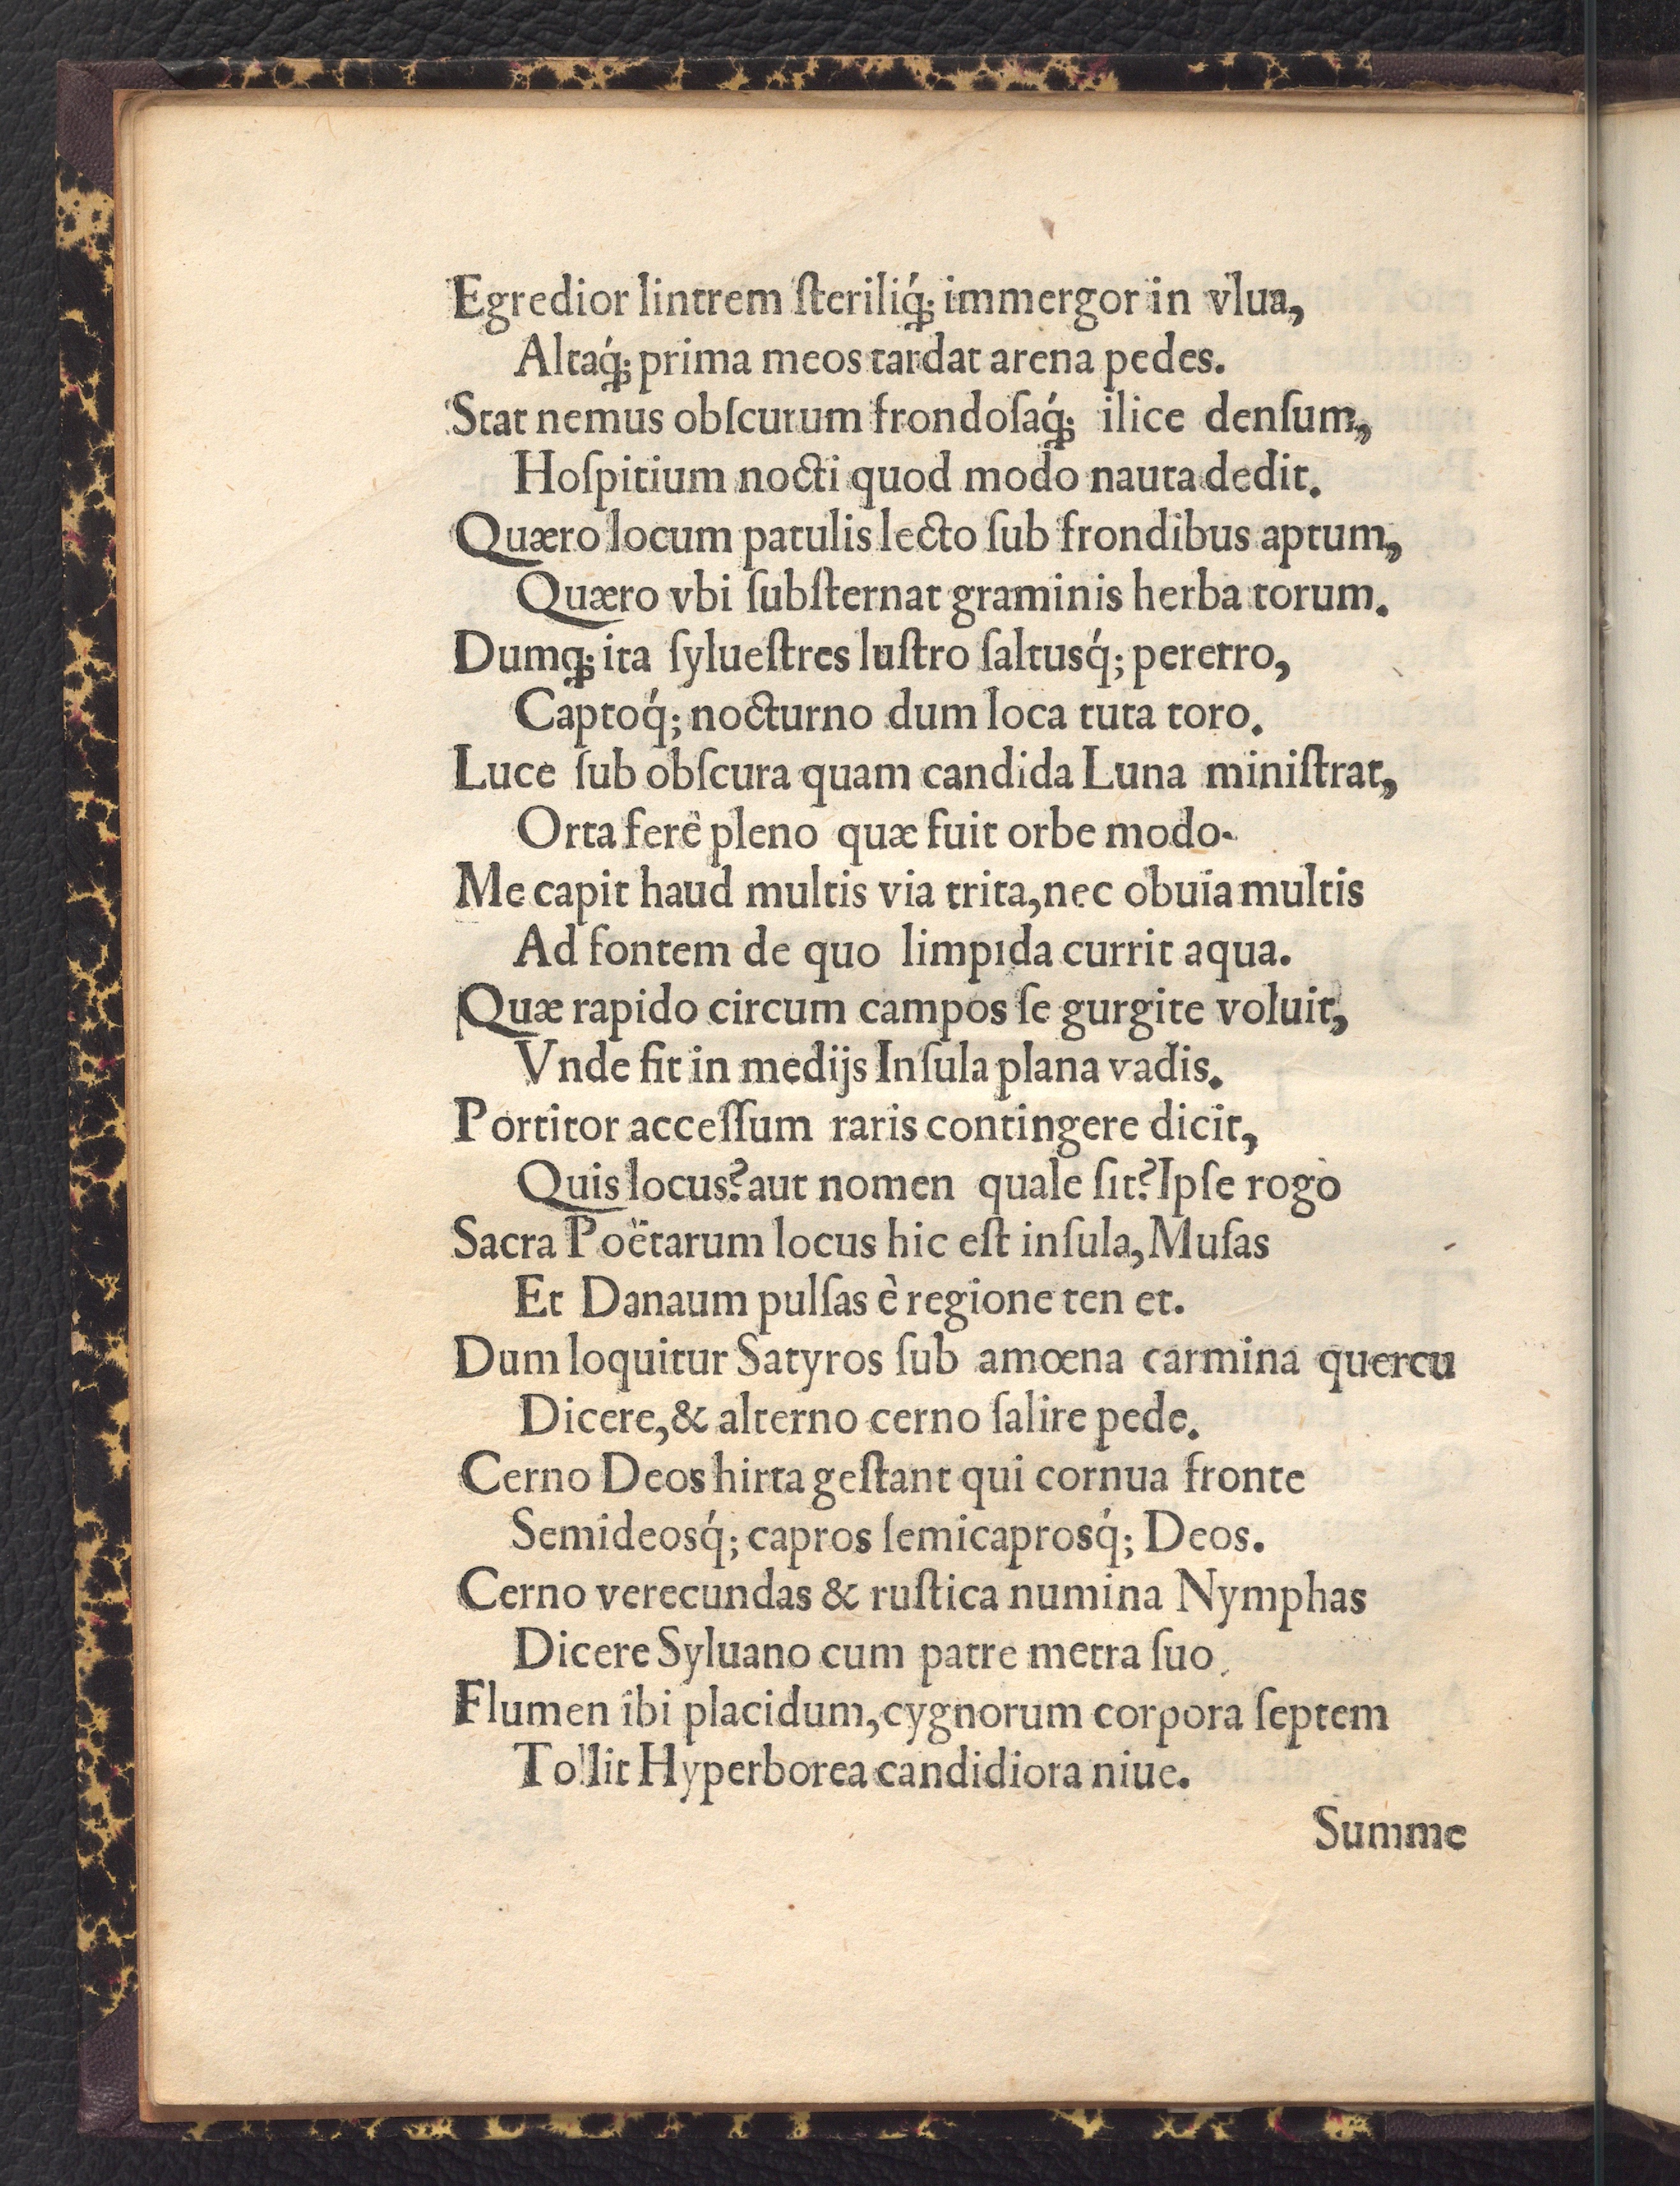 Egredior lintrem ſteriliq́; immergor in vlua,
Altaq́; prima meos tardat arena pedes.
Stat nemus obſcurum frondoſaq́; ilice denſum,
Hoſpitium nocti quod modo nauta dedit.
Quæro locum patulis lecto ſub frondibus aptum,
Quæro vbi ſubſternat graminis herba torum.
Dumq; ita ſylueſtres luſtro ſaltusq́; pererro,
Captoq́; nocturno dum loca tuta toro.
Luce ſub obſcura quam candida Luna miniſtrat,
Orta ferè pleno quæ fuit orbe modo.
Me capit haud multis via trita, nec obuia multis
Ad fontem de quo limpida currit aqua.
Quæ rapido circum campos ſe gurgite voluit,
Vnde fit in medijs Inſula plana vadis.
Portitor acceſſum raris contingere dicit,
Quis locus? aut nomen quale ſit? Ipſe rogo
Sacra Poëtarum locus hic eſt inſula, Muſas
Et Danaum pulſas è regione ten et.
Dum loquitur Satyros ſub amœna carmina quercu
Dicere, & alterno cerno ſalire pede.
Cerno Deos hirta geſtant qui cornua fronte
Semideosq́; capros ſemicaprosq́; Deos.
Cerno verecundas & ruſtica numina Nymphas
Dicere Syluano cum patre metra ſuo.
Flumen ibi placidum, cygnorum corpora ſeptem
Tollit Hyperborea candidiora niue.
Summe